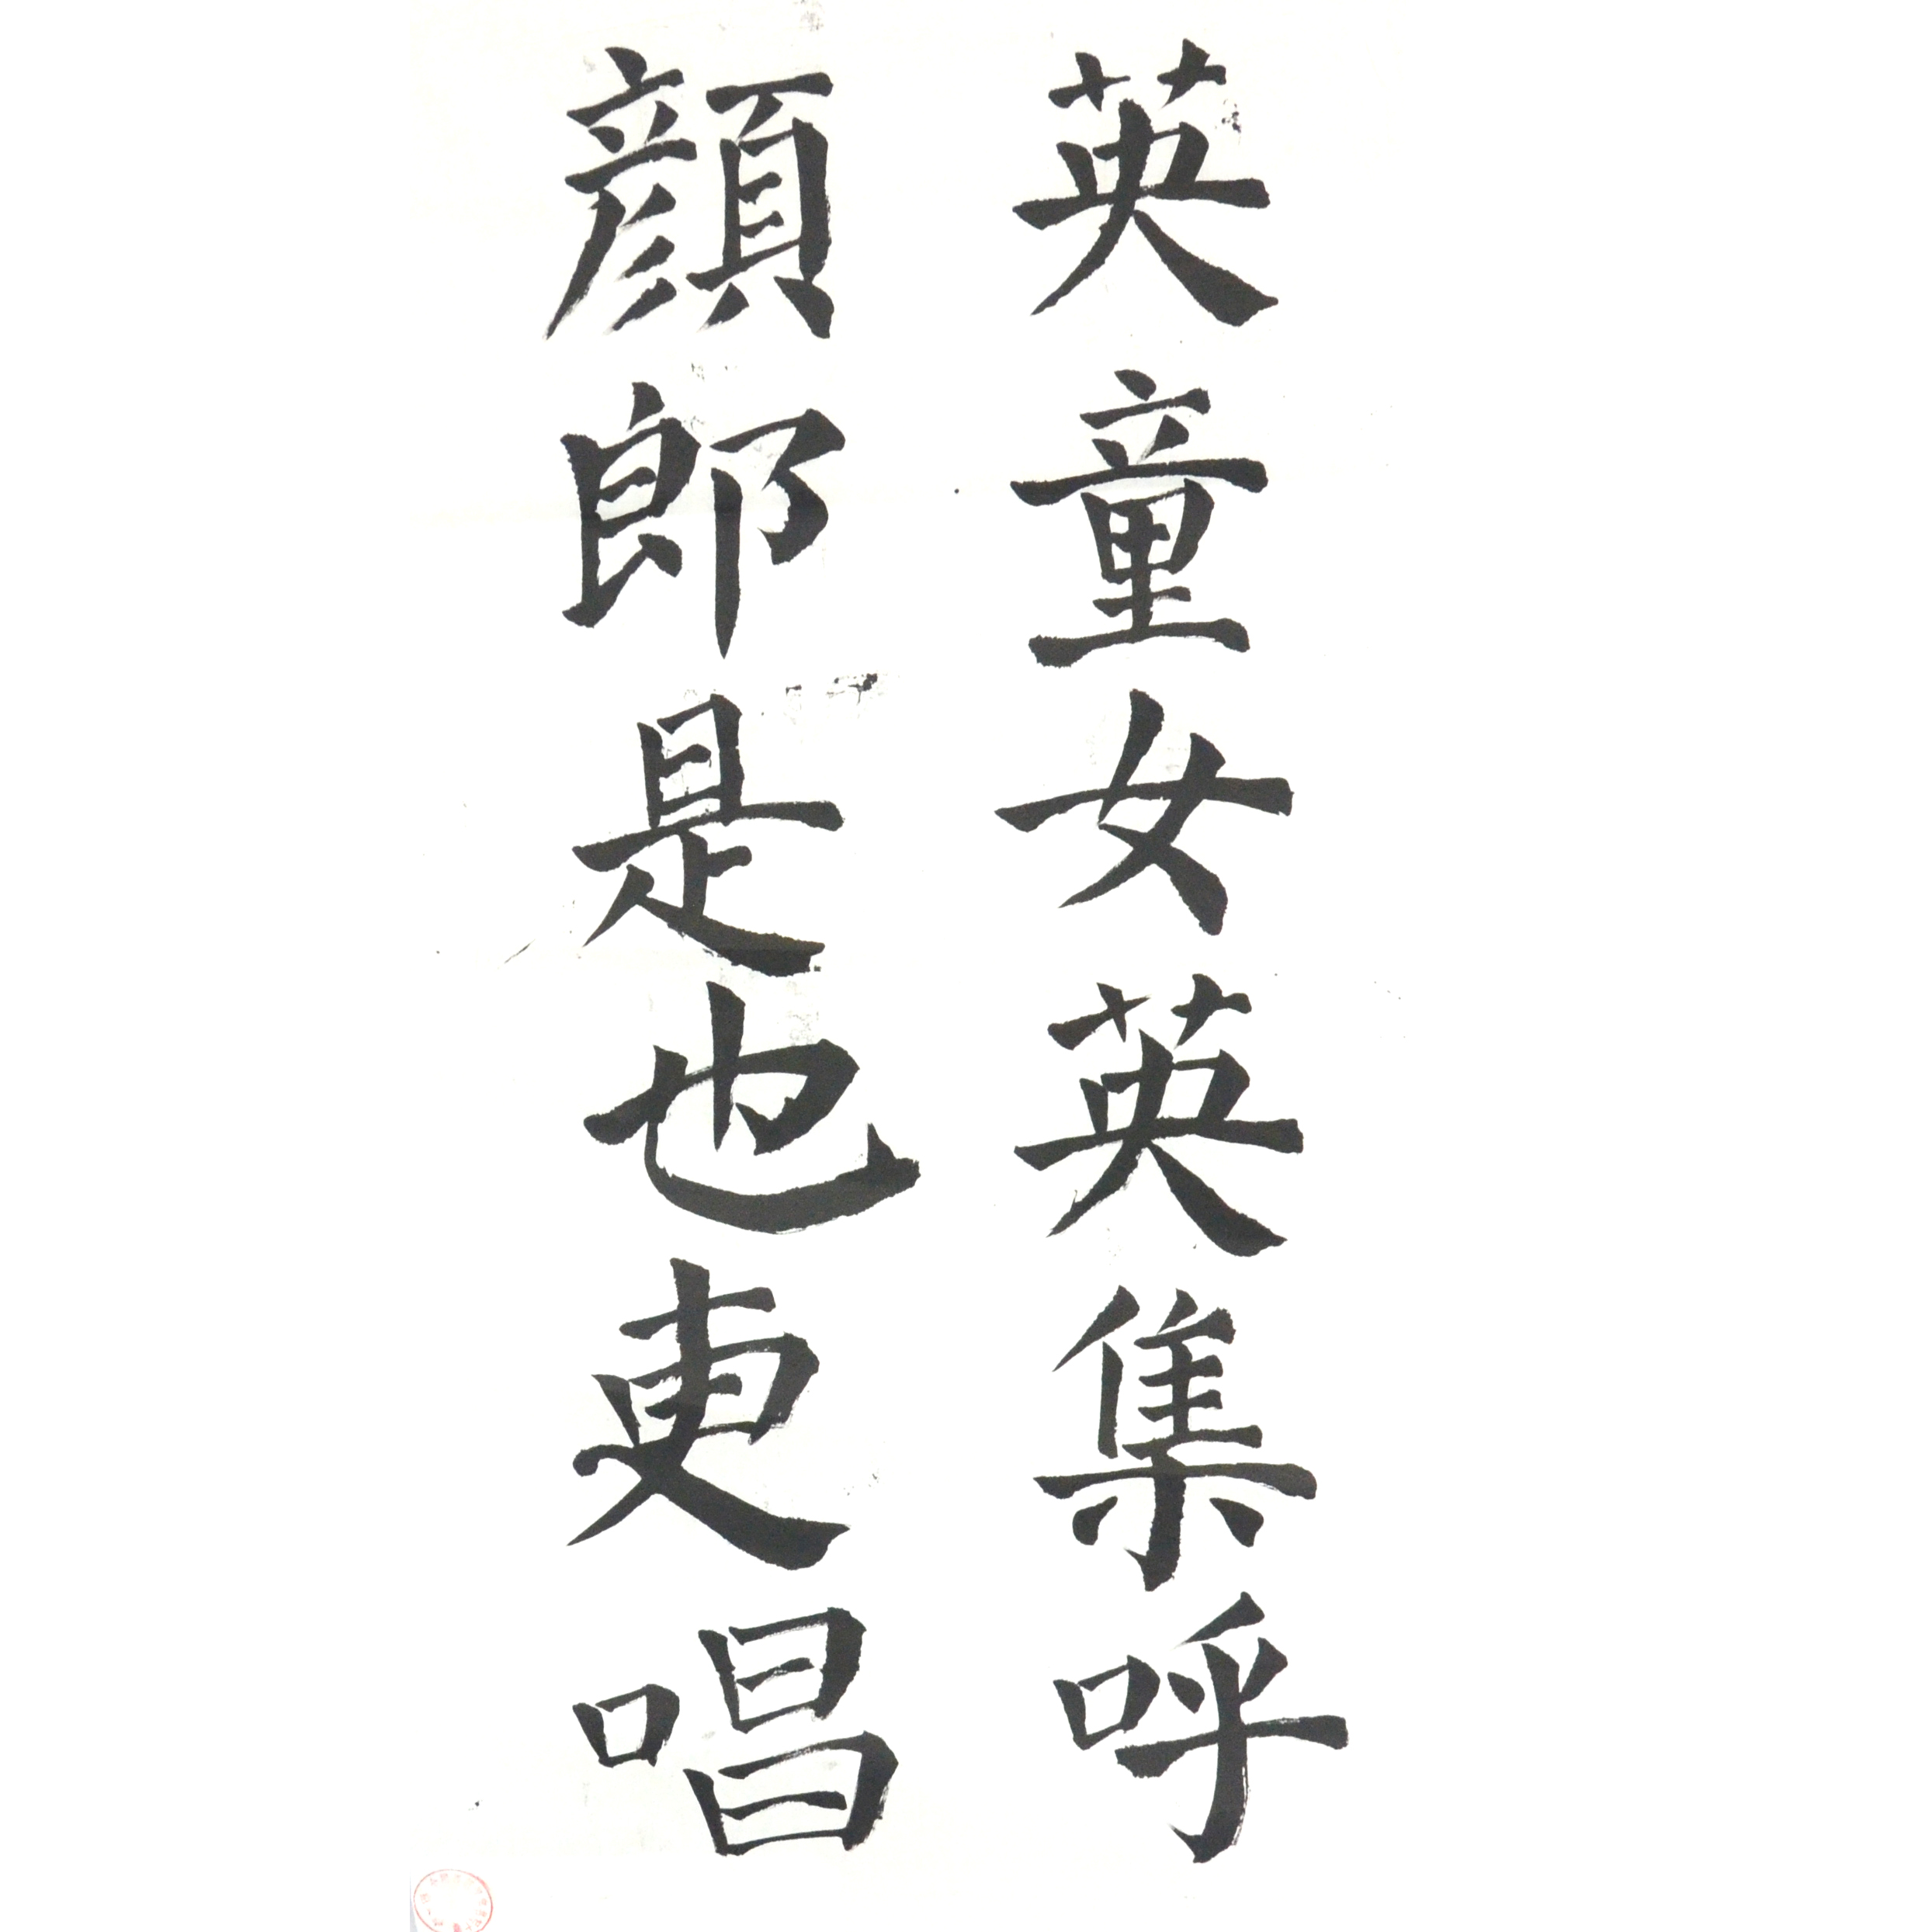 英童女英集呼
顔郎是也更唱